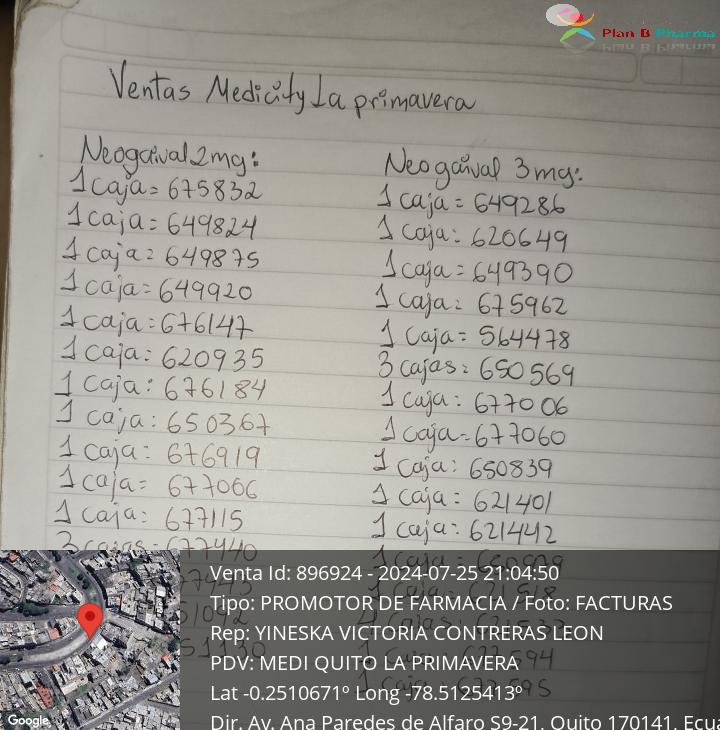 Plan B Pharma
Ventas Medicity La primavera
Neogaival 2mg:
1 caja = 675832
1 caja = 649824
1 caja = 649875
1 caja = 649920
1 caja = 676147
1 caja: 620935
1 caja: 676184
1 caja: 650367
1 caja: 676919
1 caja = 677066
1 caja: 677115
3 cajas = 677440
Neogaival 3mg:
1 caja = 649286
1 caja: 620649
1 caja = 649390
1 caja: 675962
1 caja = 564478
3 cajas: 650569
1 caja: 677006
1 caja = 677060
1 caja: 650839
1 caja: 621401
1 caja: 621442
1 caja
1 caja
1 caja
1 caja
Venta Id: 896924 - 2024-07-25 21:04:50
Tipo: PROMOTOR DE FARMACIA / Foto: FACTURAS
Rep: YINESKA VICTORIA CONTRERAS LEON
PDV: MEDI QUITO LA PRIMAVERA
Lat -0.2510671º Long -78.5125413º
Dir. Av. Ana Paredes de Alfaro S9-21, Quito 170141, Ecua
Google